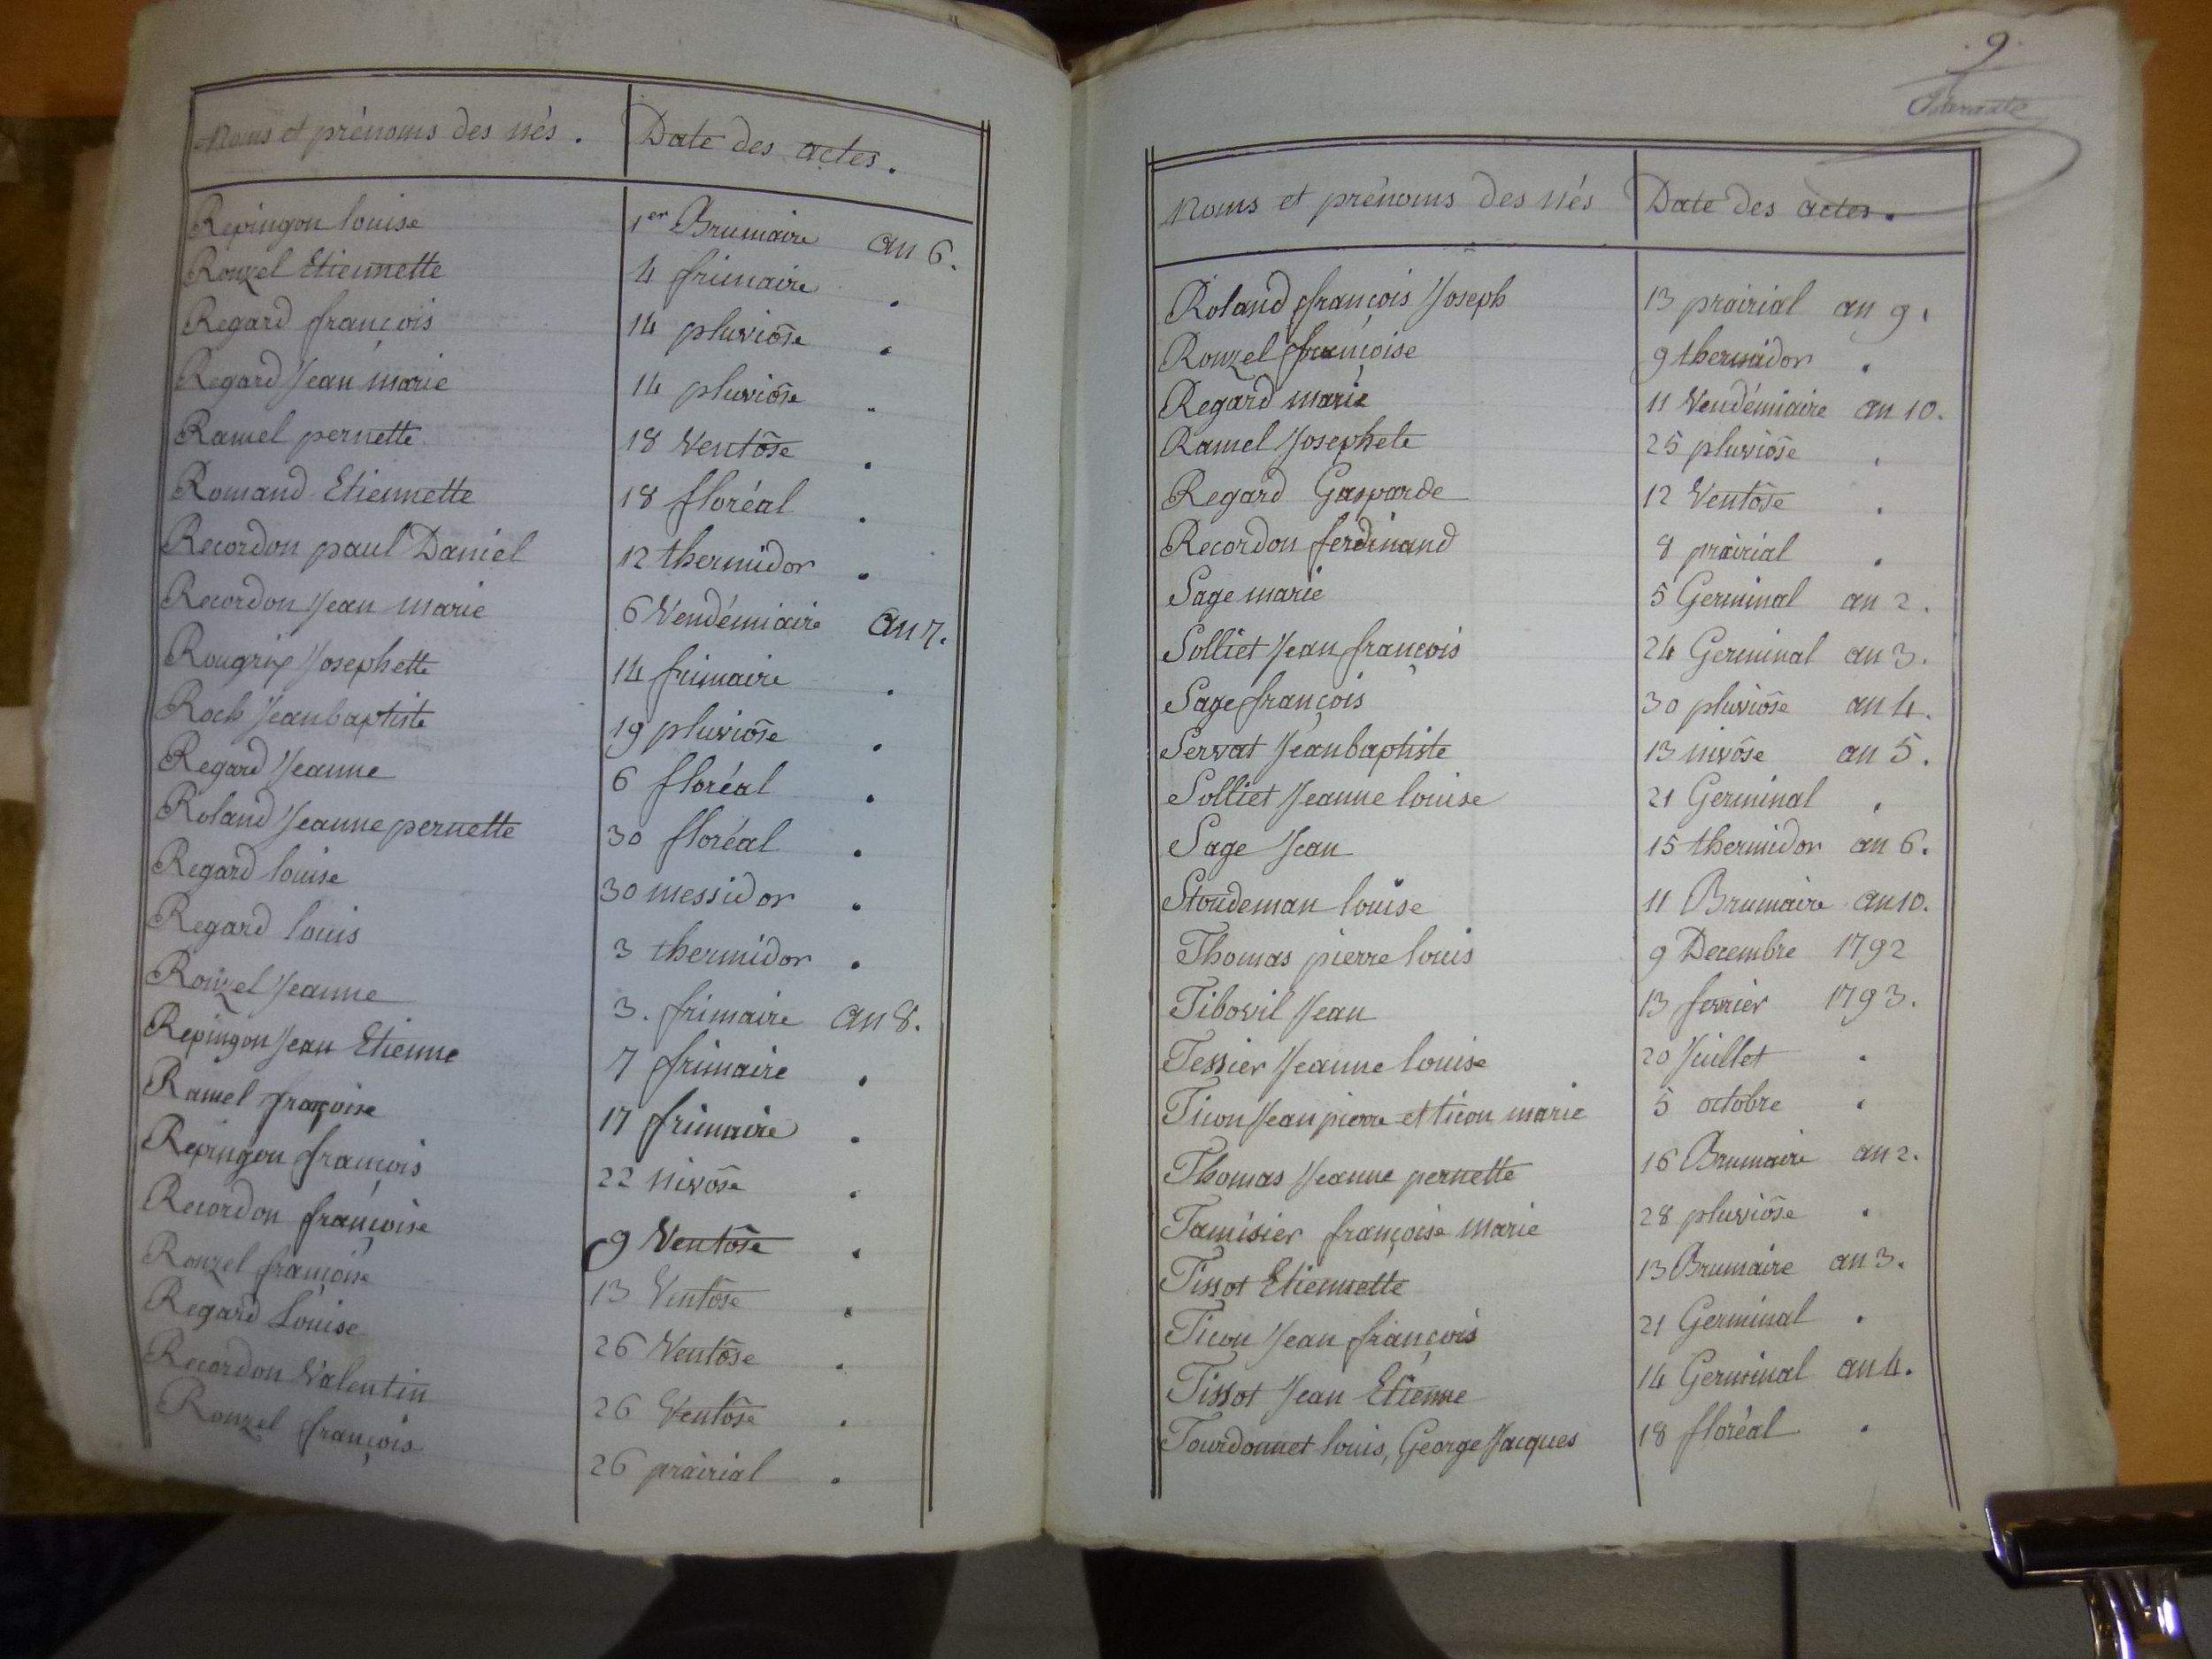 Noms et prénoms des nés. Date des actes.
Repingon louise 1er Brumaire an 6.
Ronzel Etiennette 4 frimaire .
Regard françois 14 pluviôse .
Regard Jean marie 14 pluviôse "
Ramel pernette 18 Ventôse .
Romand Etiennette 18 floréal .
Recordon paul Daniel 12 thermidor .
Recordon Jean marie 6 Vendémiaire an 7.
Rougrix Josephette 14 frimaire .
Roch Jean baptiste 19 pluviôse .
Regard Jeanne 6 floréal .
Roland Jeanne pernette 30 floréal .
Regard louise 30 messidor .
Regard louis 3 thermidor .
Ronzel Jeanne 3. frimaire an 8.
Repingon Jean Etienne 7 frimaire .
Ramel françoise 17 frimaire .
Repingon françois 22 nivôse .
Recordon françoise 9 Ventôse .
Ronzel françoise 13 Ventôse .
Regard Louise 26 Ventôse .
Recordon Valentin 26 Ventôse .
Ronzel françois 26 prairial .
. 9.
Noms et prénoms des nés Date des actes.
Roland françois Joseph 13 prairial an 9.
Ronzel françoise 9 thermidor .
Regard marie 11 Vendémiaire an 10.
Ramel Josephete 25 pluviôse .
Regard Gasparde 12 Ventôse .
Recordon ferdinand 8 prairial .
Sage marie 5 Germinal an 2.
Solliet Jean françois 24 Germinal an 3.
Sage françois 30 pluviôse an 4.
Servat Jean baptiste 13 nivôse an 5.
Solliet Jeanne louise 21 Germinal .
Sage Jean 15 thermidor an 6.
Stoudeman louise 11 Brumaire an 10.
Thomas pierre louis 9 Decembre 1792
Tibovil Jean 13 fevrier 1793.
Tessier Jeanne louise 20 Juillet .
Ticon Jean pierre et ticon marie 5 octobre .
Thomas Jeanne pernette 16 Brumaire an 2.
Tamisier françoise marie 28 pluviôse .
Tissot Etiennette 13 Brumaire an 3.
Ticon Jean françois 21 Germinal .
Tissot Jean Etienne 14 Germinal an 4.
Tourdonnet louis, George Jacques 18 floréal .